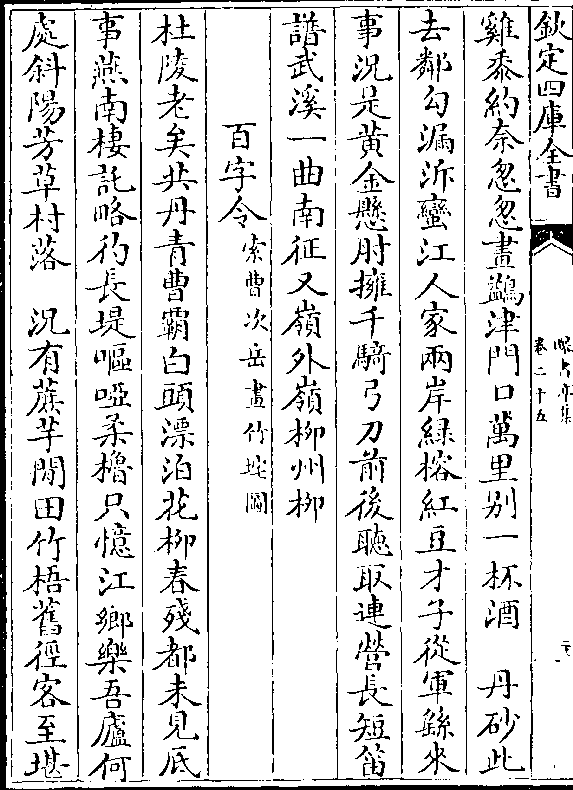 欽定四庫全書
曝書亭集
卷二十五
雞黍約奈忽忽畫鷁津門口萬里别一杯酒　丹砂此
去鄰勾漏泝蠻江人家兩岸緑榕紅豆才子從軍繇來
事况是黄金懸肘擁千騎弓刀前後聽取連營長短笛
譜武溪一曲南征又嶺外嶺柳州柳
百字令索曹次岳畫竹垞圖
杜陵老矣共丹青曹霸白頭漂泊花柳春殘都未見底
事燕南棲託略彴長堤嘔啞柔櫓只憶江鄉樂吾廬何
處斜陽芳草村落　况有蔗芋閒田竹梧舊徑客至堪